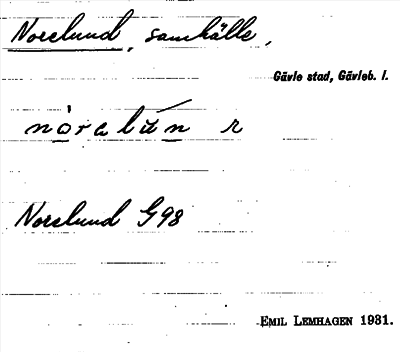 Norslund, samhälle,
Gävle stad, Gävleb. l.
Norslund G98
EMIL LEMHAGEN 1931.